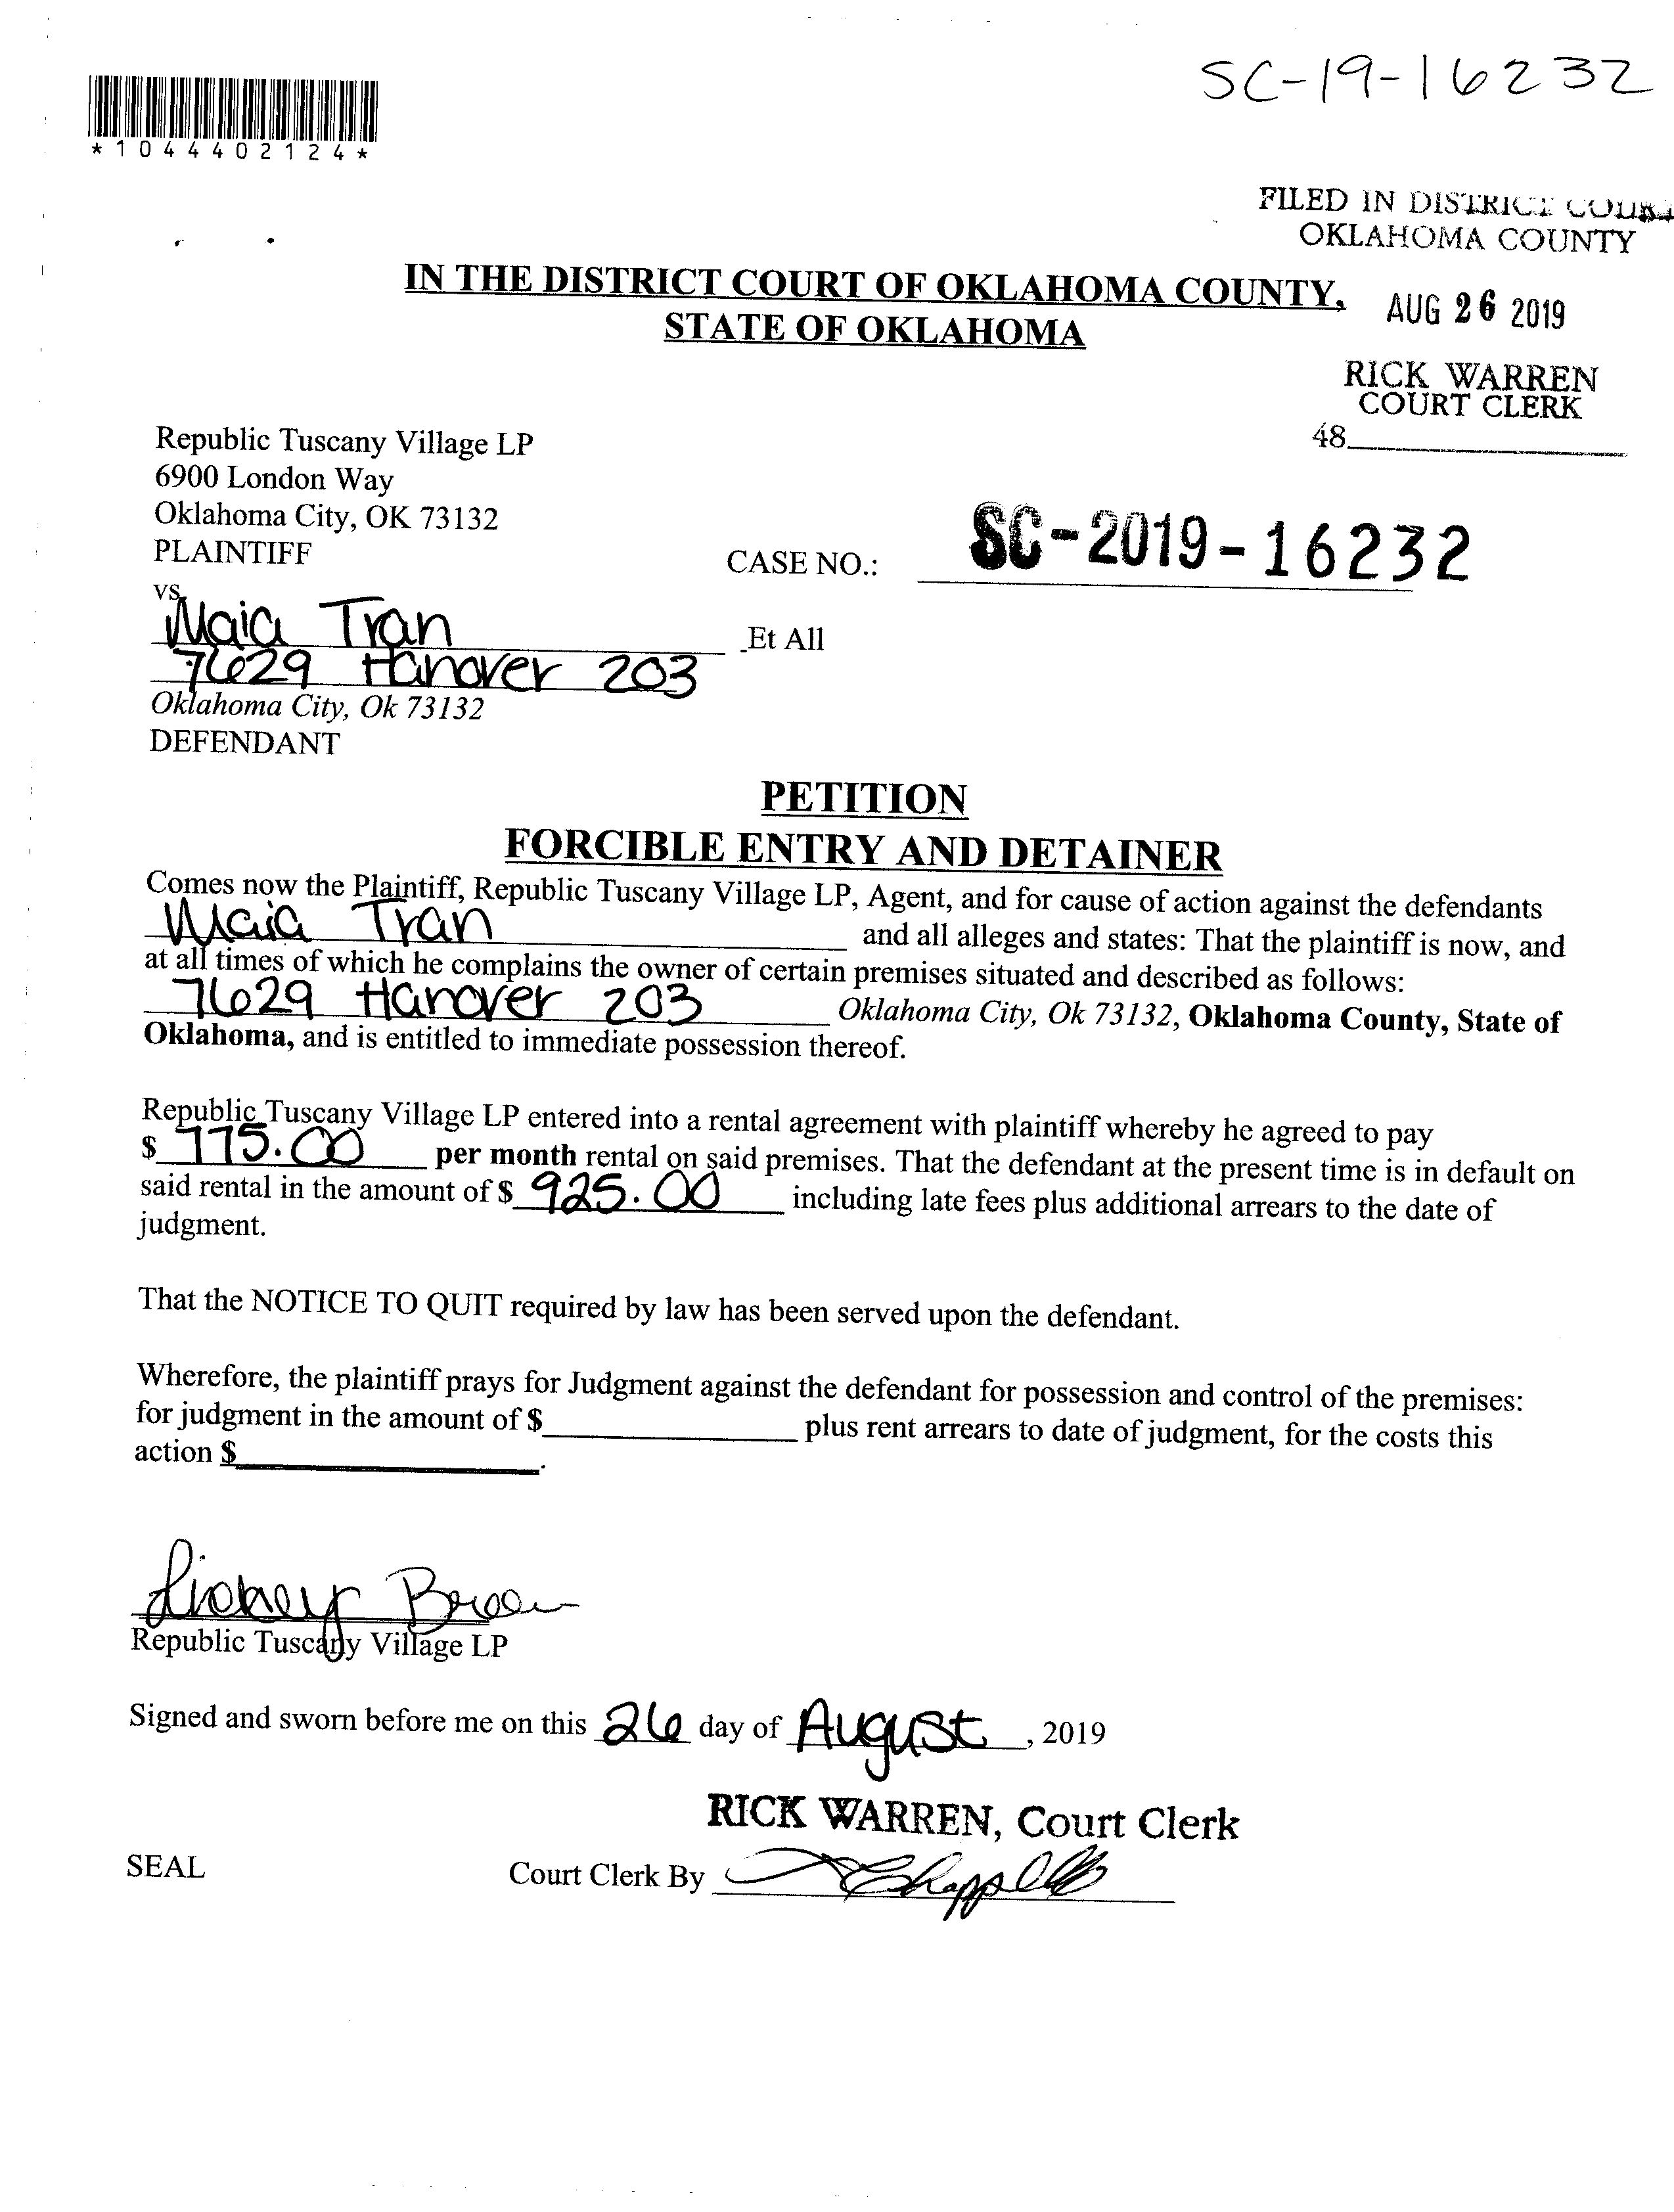 SC-19-16232
*1044402124*
FILED IN DISTRICT COURT
OKLAHOMA COUNTY
IN THE DISTRICT COURT OF OKLAHOMA COUNTY,
STATE OF OKLAHOMA
AUG 26 2019
RICK WARREN
COURT CLERK
48
Republic Tuscany Village LP
6900 London Way
Oklahoma City, OK 73132
PLAINTIFF
CASE NO.: SC-2019-16232
vs.
Maia Tran Et All
7629 Hanover 203
Oklahoma City, Ok 73132
DEFENDANT
PETITION
FORCIBLE ENTRY AND DETAINER
Comes now the Plaintiff, Republic Tuscany Village LP, Agent, and for cause of action against the defendants
Maia Tran and all alleges and states: That the plaintiff is now, and
at all times of which he complains the owner of certain premises situated and described as follows:
7629 Hanover 203 Oklahoma City, Ok 73132, Oklahoma County, State of
Oklahoma, and is entitled to immediate possession thereof.
Republic Tuscany Village LP entered into a rental agreement with plaintiff whereby he agreed to pay
$ 775.00 per month rental on said premises. That the defendant at the present time is in default on
said rental in the amount of $ 925.00 including late fees plus additional arrears to the date of
judgment.
That the NOTICE TO QUIT required by law has been served upon the defendant.
Wherefore, the plaintiff prays for Judgment against the defendant for possession and control of the premises:
for judgment in the amount of $ plus rent arrears to date of judgment, for the costs this
action $ .
Republic Tuscany Village LP
Signed and sworn before me on this 26 day of August, 2019
RICK WARREN, Court Clerk
SEAL Court Clerk By